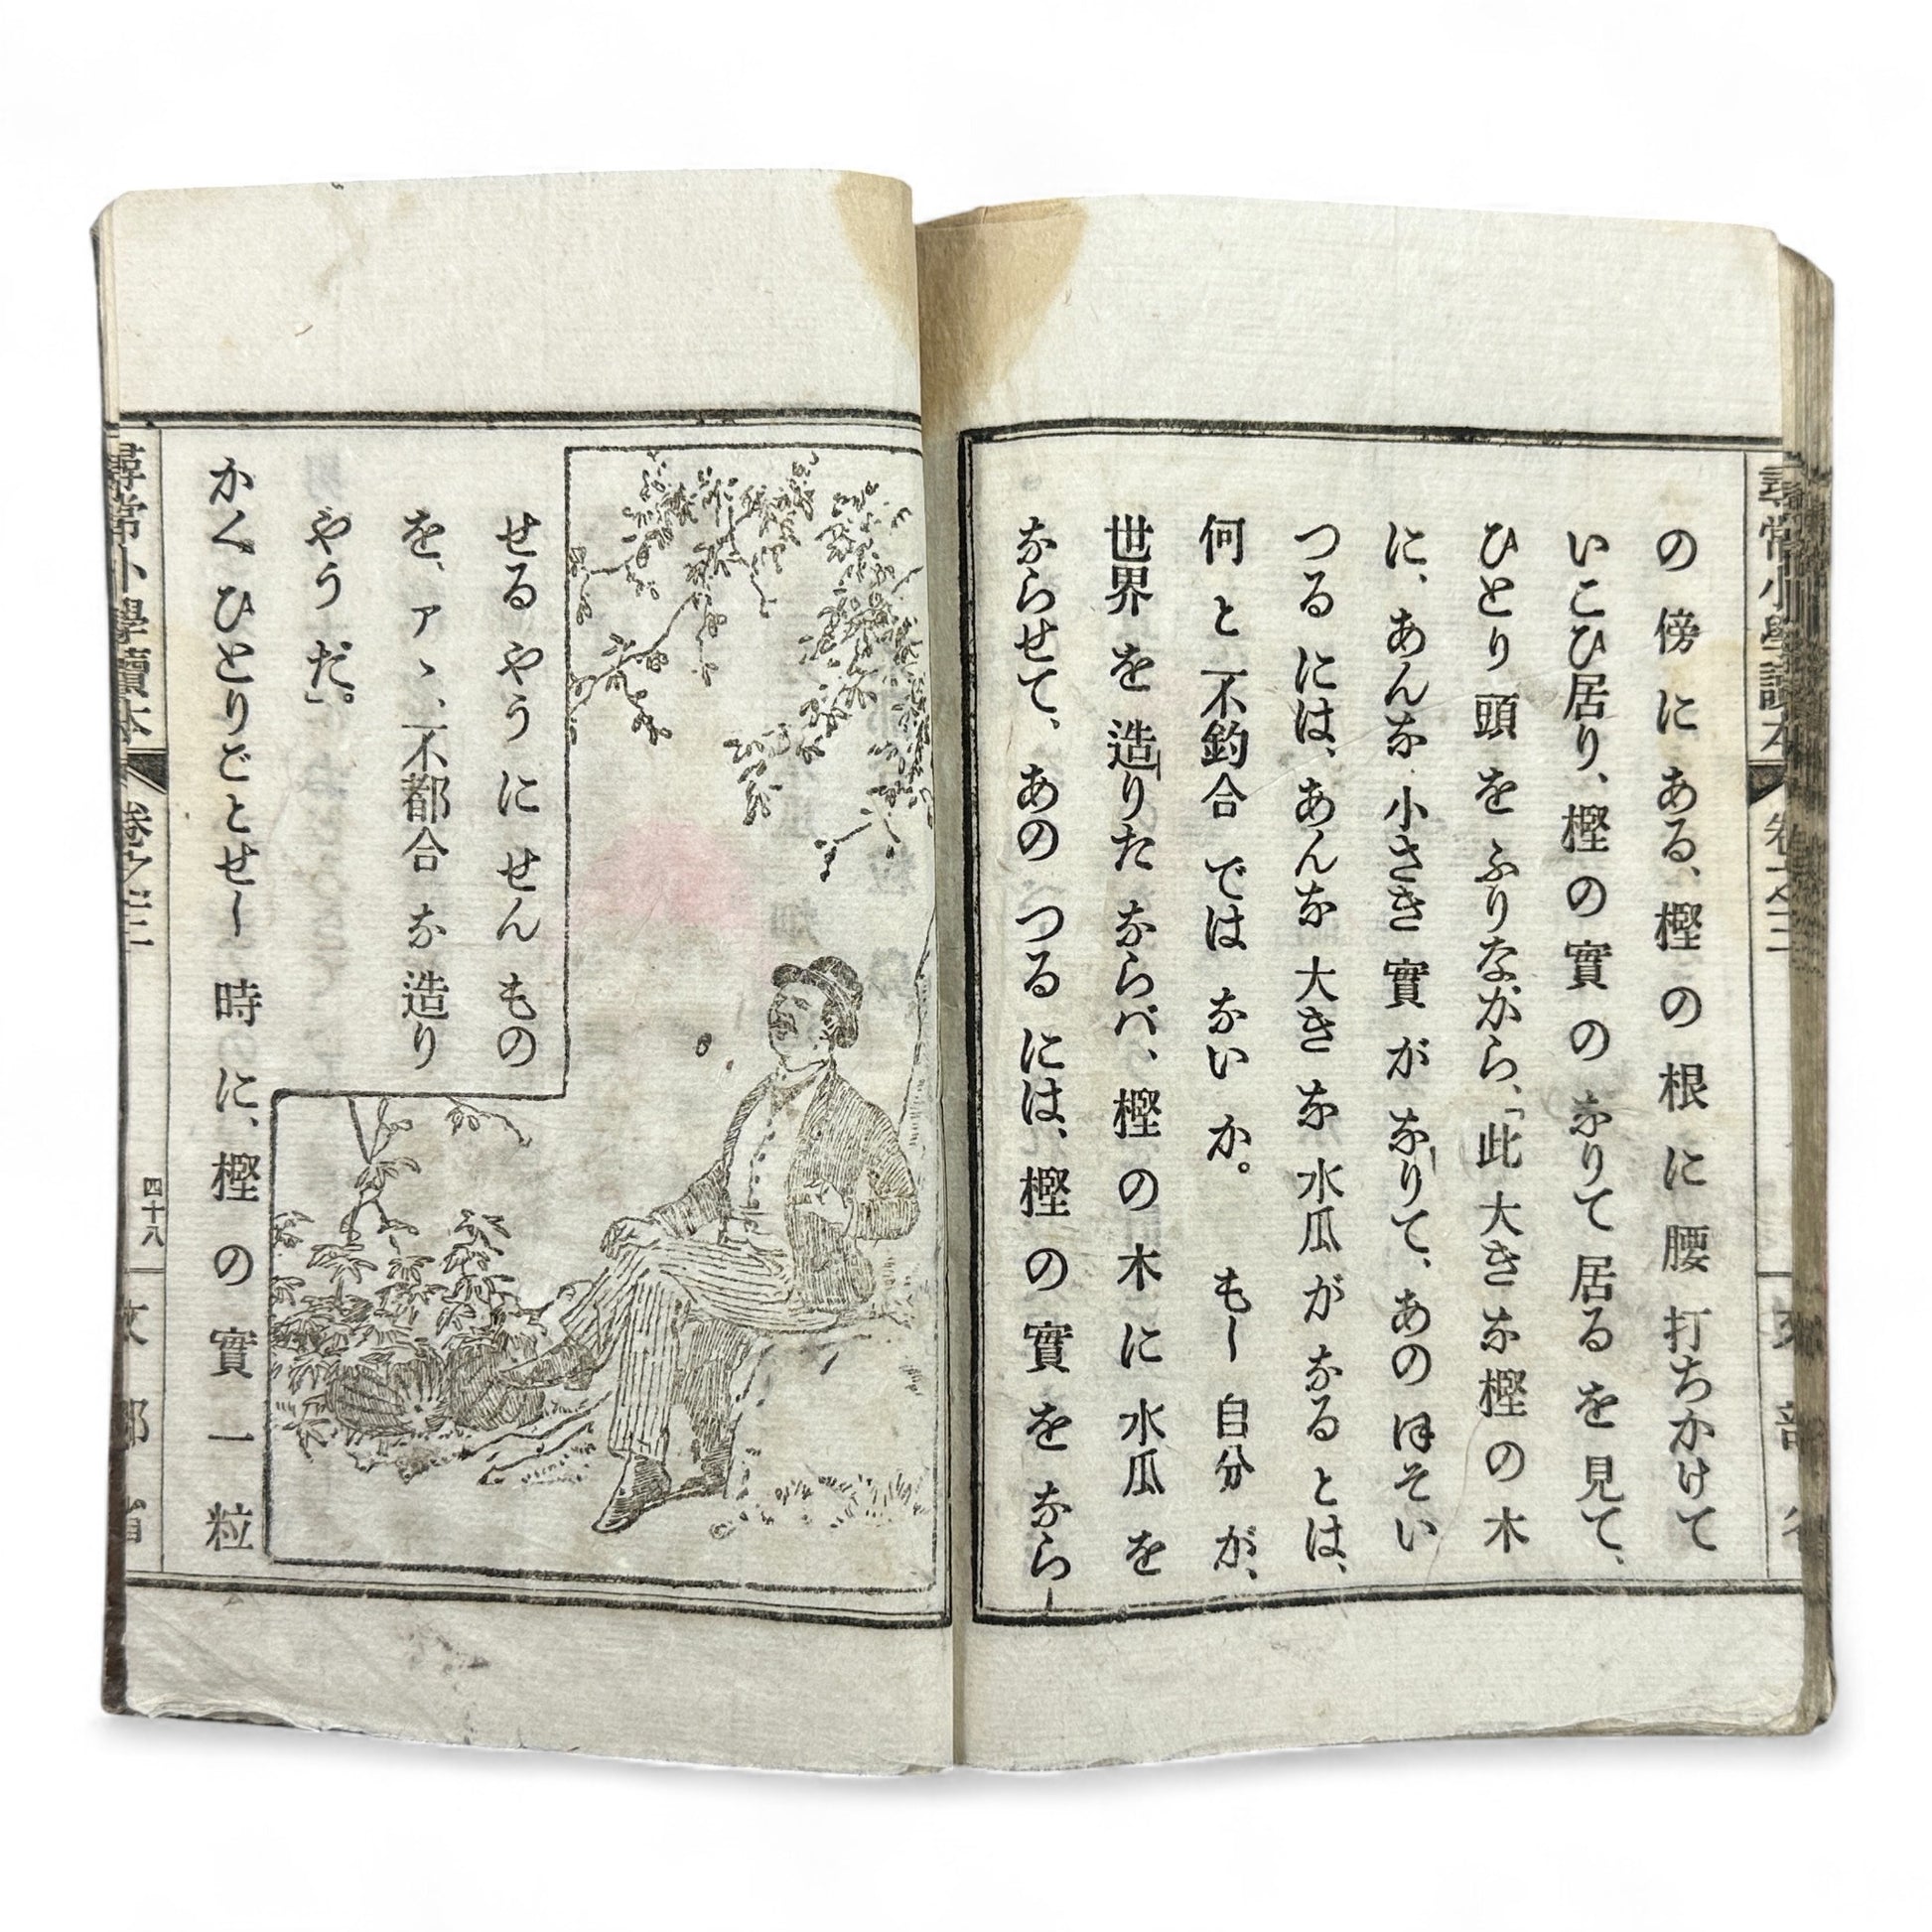 の傍にある、樫の根に腰打ちかけて
いこひ居り、樫の實のなりて居るを見て、
ひとり頭をふりながら、「此大きな樫の木
に、あんな小さき實がなりて、あのほそい
つるには、あんな大きな水瓜がなるとは、
何と不釣合ではないか。もし自分が、
世界を造りたならバ、樫の木に水瓜を
ならせて、あのつるには、樫の實をなら
せるやうにせんもの
を、アヽ、不都合な造り
やうだ。」
かくひとりごとせし時に、樫の實一粒
尋常小學讀本
卷之三
四十八
文部省